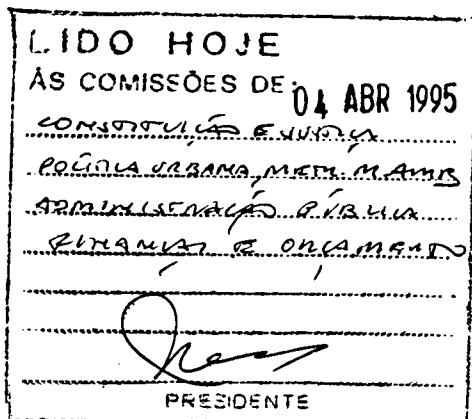 LIDO HOJE
ÀS COMISSÕES DE:
04 ABR 1995
CONSTITUIÇÃO E JUSTIÇA
POLÍTICA URBANA, METR. M. AMB
ADMINISTRAÇÃO PÚBLICA
FINANÇAS E ORÇAMENTO
PRESIDENTE